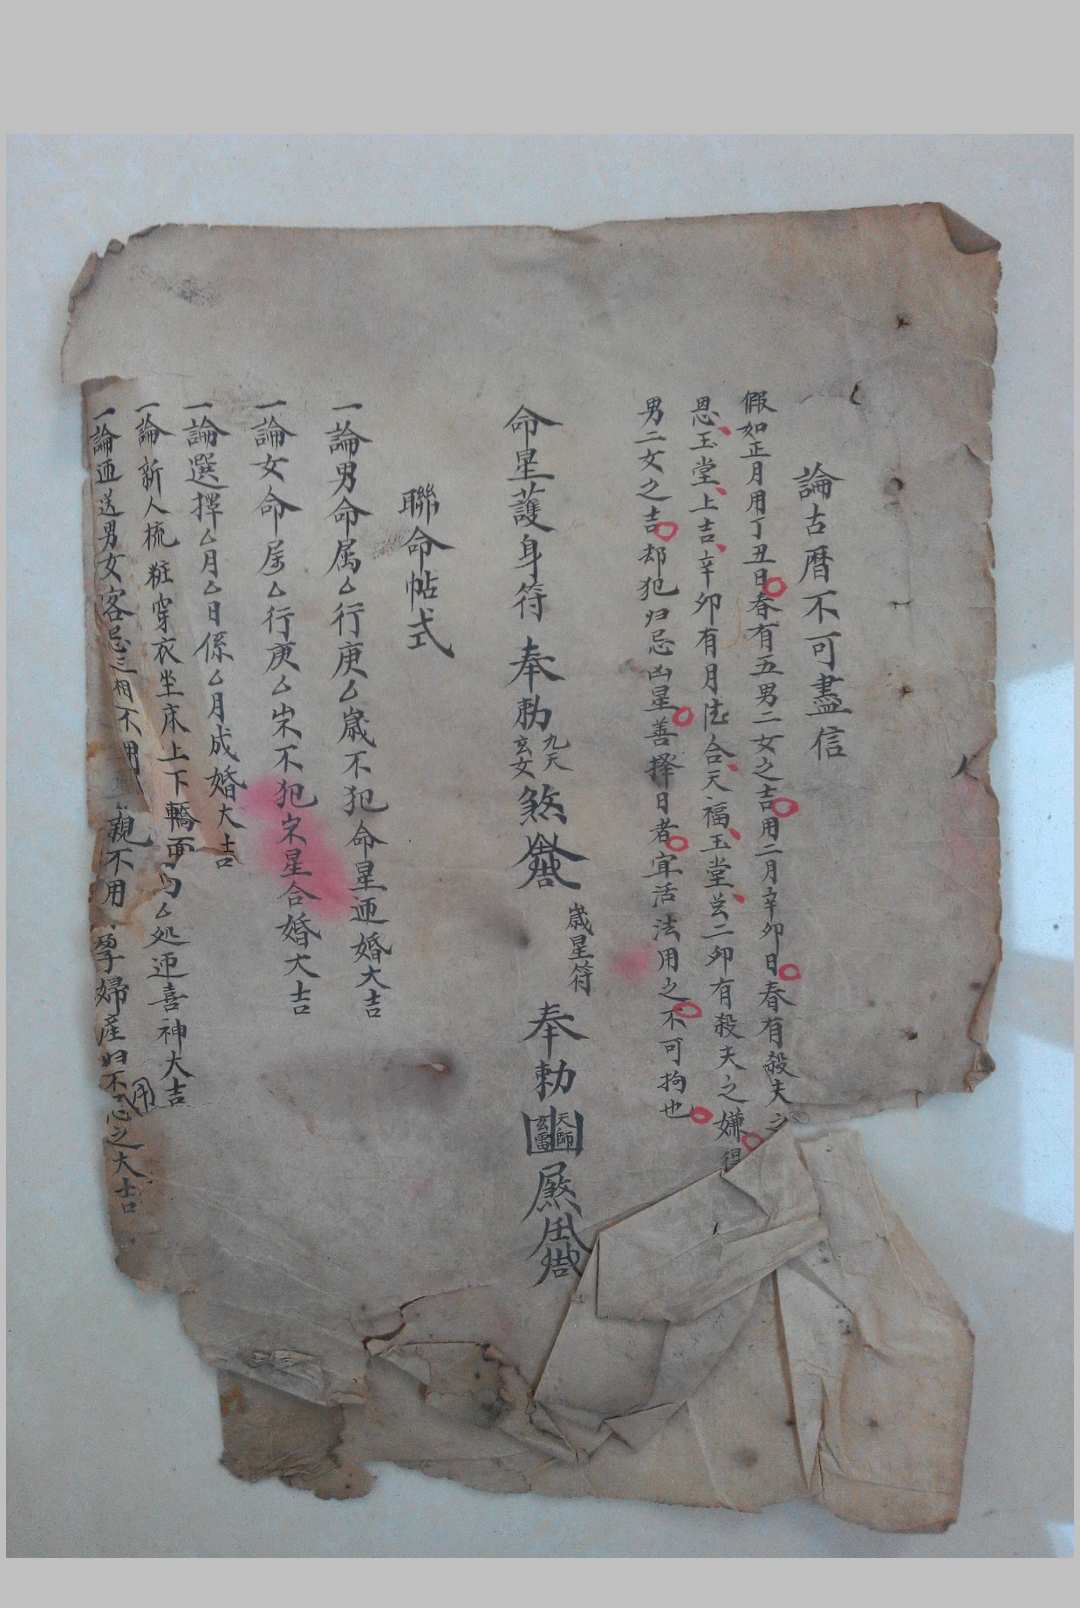 論古暦不可盡信
假如正月用丁丑日春有五男二女之吉用二月辛卯日春有殺夫之
恩玉堂上吉辛卯有月德合天福玉堂芸二卯有殺夫之嫌得
男二女之吉却犯归忌凶星善擇日者宜活法用之不可拘也
命星護身符 奉勅 九天玄女 煞 歲星符 奉勅 天師玄雷
聯命帖式
一論男命属△行庚△歲不犯命星迊婚大吉
一論女命属△行庚△岁不犯岁星合婚大吉
一論選擇△月△日係△月成婚大吉
一論新人梳粧穿衣坐床上下轎面向△処迊喜神大吉
一論迊送男女客忌三相不用 親不用 孕婦產妇不用忌之大吉